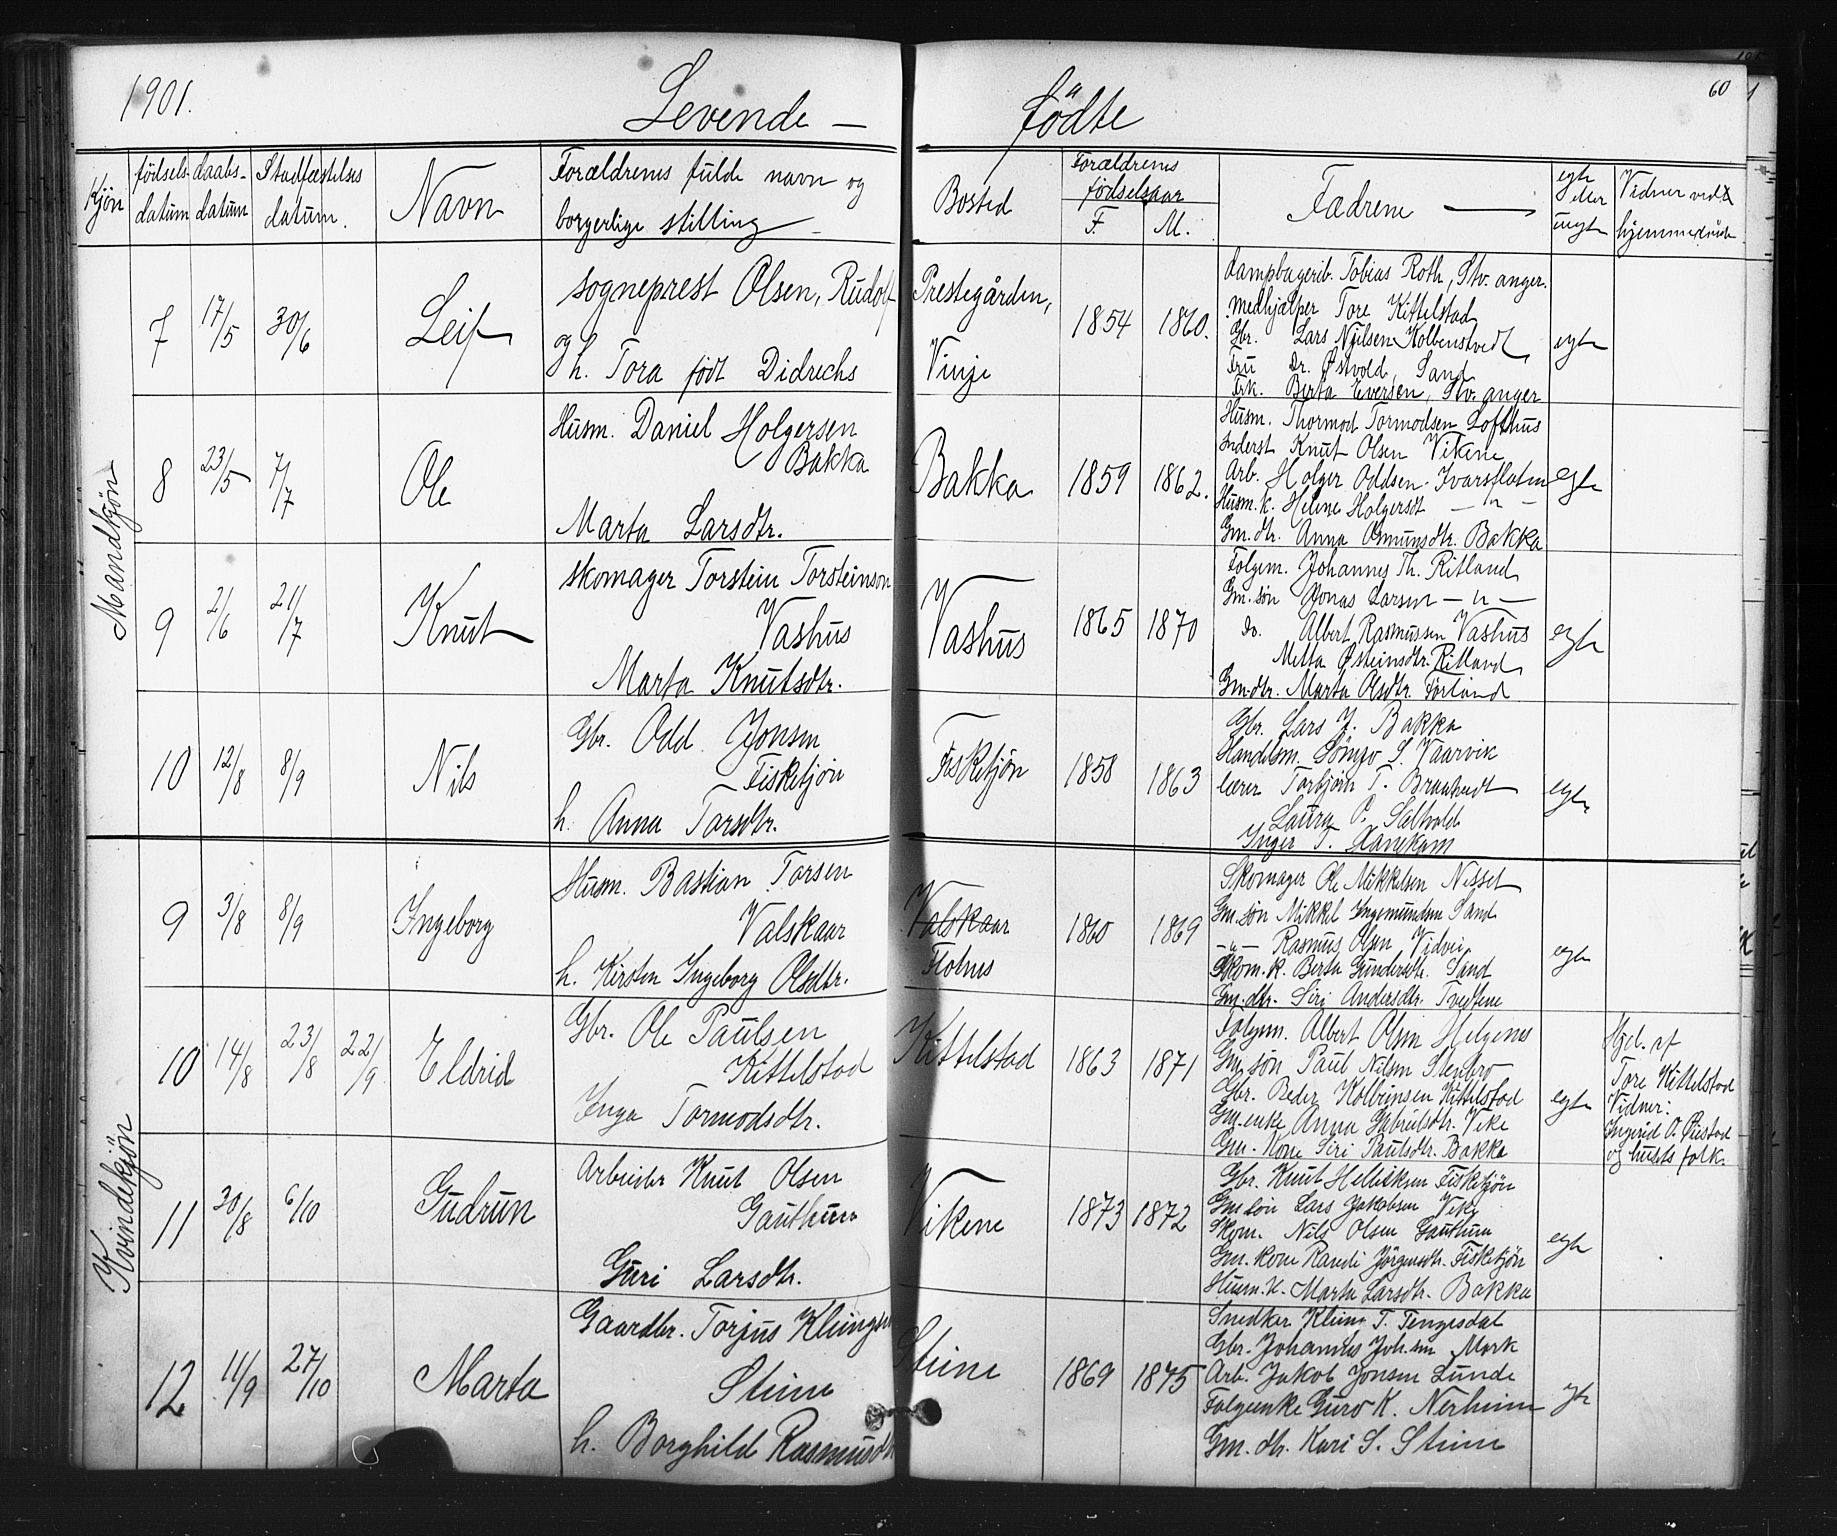 1901.
Levende — fødte
60
Kjøn
fødsels-
datum
daabs-
datum
Stadfæstelses
datum.
Navn
Forældrenes fulde navn og
borgerlige stilling
Bosted
Forældrenes
fødselsaar
F.
M.
Fadrene
egte
eller
uegte
Vidner ved
hjemmedaab
Mandkjøn
7
17/5
30/6
Leif
sogneprest Olsen, Rudolf
og
h. Tora født Didrechs
Prestegården,
Vinje
1854
1860.
Dampbagerib. Tobias Roth, Stv. anger.
medhjælper Tore Kittelstad
Gbr. Lars Nilsen Kolbenstvedt
Fru Dr. Østvold, Sand
Frk. Berta Eversen, Stv. anger
egte
8
23/5
7/7
Ole
Husm. Daniel Holgersen
Bakka
Marta Larsdtr.
Bakka
1859
1862.
Husm. Thormod Tormodsen Lofthus
Inderst Knut Olsen Vikene
Arb. Holger Oddsen Ivarsflaten
Husm. k. Helene Holgersdt — " —
Gm. dtr. Anna Osmunsdtr. Bakka
egte
9
2/6
21/7
Knut
skomager Torstein Torsteinson
Vashus
Marta Knutsdtr.
Vashus
1865
1870
Folgem. Johannes Th. Ritland
Gm. søn Jonas Larsen — " —
do. Albert Rasmussen Vashus
Metta Østeinsdtr. Ritland
Gm. dtr. Marta Olsdtr. Førland
egte
10
12/8
8/9
Nils
Gbr. Odd Jonsen
Fisketjøn
h. Anna Tarsdtr.
Fisketjøn
1858
1863
Gbr. Lars J. Bakka
Handelsm. S. Vaarvik
lærer Torbjørn T.
Laura P.
Inger T. Hanekam
egte
Kvindekjøn
9
3/8
8/9
Ingeborg
Husm. Bastian Tarsen
Valskaar
h. Kirsten Ingeborg Olsdtr.
Valskaar
Flohus
1860
1869
Skomager Ole Mikkelsen Nesset
Gm. søn Mikkel Ingemundsen Sand
— " — Rasmus Olsen Vidvei
Skom. k. Berta Gundersdtr. Sand
Gm. dtr. Siri Andersdtr. Tvedtene
egte
10
14/8
23/8
22/9
Eldrid
Gbr. Ole Paulsen
Kittelstad
Inga Tormodsdtr.
Kittelstad
1863
1871
Folgem. Albert Olsen Helgenes
Gm. søn Paul Nilsen Stenbro
Gbr. Peder Kolbeinsen Kittelstad
Gm. enke Anna Gabrielsdtr. Vike
Gm. kone Siri Paulsdtr. Bakka
egte
Hjd. af
Tore Kittelstad
Vidner:
Ingerid O. Øiestad
og husets folk.
11
30/8
6/10
Gudrun
Arbeider Knut Olsen
Gauthun
Guri Larsdtr.
Vikene
1873
1872
Gbr. Knut Helliksen Fisketjøn
Gm. søn Lars Jakobsen Vike
Skom. Nils Olsen Gauthun
Gm. kone Randi Jørgensdtr. Fisketjøn
Husm. k. Marta Larsdtr. Bakka
egte
12
11/9
27/10
Marta
Gaardbr. Torjus Klungsen
Steine
h. Borghild Rasmusdtr
Steine
1869
1875
Snedker Kleim T. Tengesdal
Gbr. Johannes Joh.sen Mork
Arb. Jakob Jonsen Lunde
Folgeenke Guro K. Nerheim
Gm. dtr. Kari S. Steine
egte